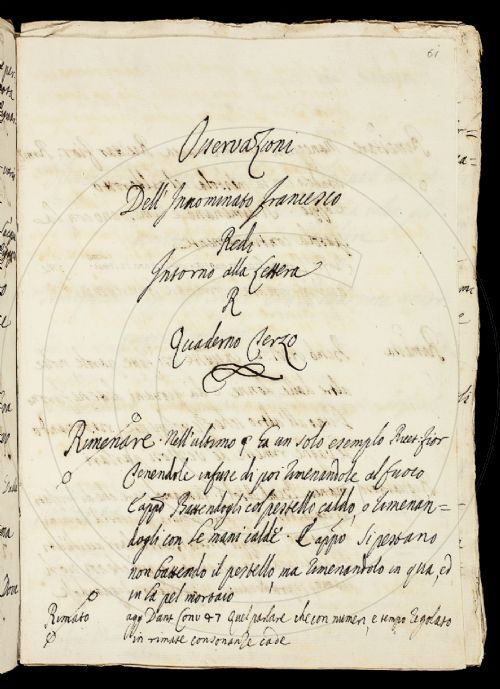 61
Osservazioni
Dell'Innominato Francesco
Redi
Intorno alla Lettera
R
Quaderno Terzo
Rimenare. Nell'ultimo § ha un solo esemplo Ricet. Fior
Tenendole infuse di poi rimenandole al fuoco
E appo Battendogli col pestello caldo, o rimenan=
dogli con le mani calde. E appo Si pestano
non battendo il pestello, ma rimenandolo in qua, ed
in là pel mortaio
Rimato agg Dant Conv 47 Quel parlare che con numeri, e tempo regolato
in rimate consonanze cade